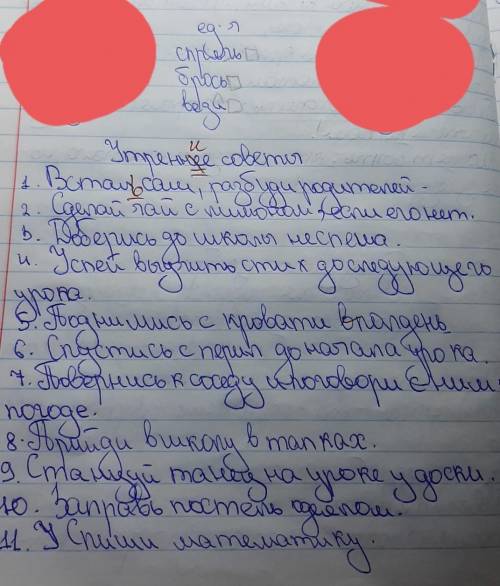 ед-я
спрячь
брось
веди
Утренние советы
1. Встань сам, разбуди родителей -
2. Сделай чай с лимоном, если его нет.
3. Доберись до школы неспеша.
4. Успей выучить стих до следующего
урока.
5. Поднимись с кровати в полдень
6. Спустись с перил до начала урока.
7. Повернись к соседу и поговори с ним
погоде.
8. Прийди в школу в тапках.
9. Станцуй танец на уроке у доски.
10. Заправь постель одеялом.
11. Спиши математику.